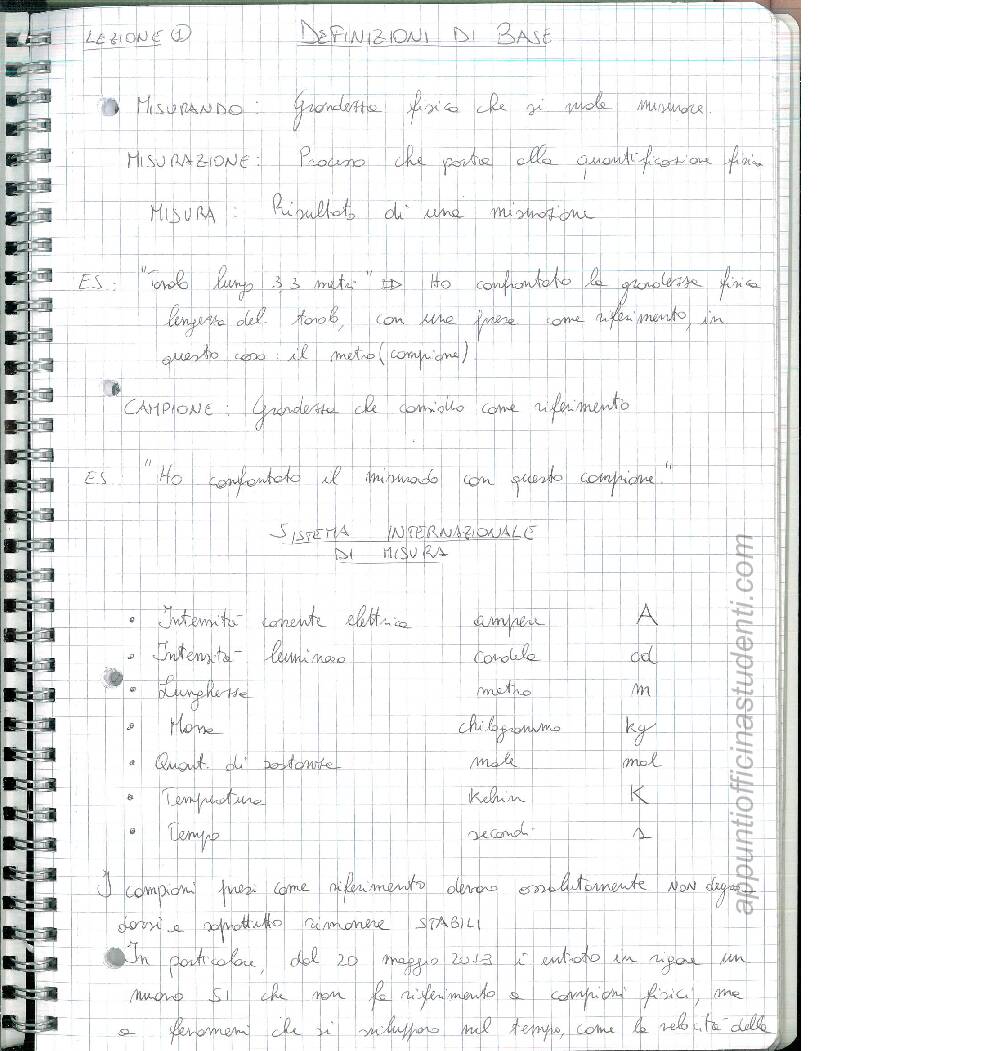 LEZIONE ① DEFINIZIONI DI BASE
MISURANDO: Grandezza fisica che si vuole misurare.
MISURAZIONE: Processo che porta alla quantificazione fisica
MISURA: Risultato di una misurazione
ES.: "Tavolo lungo 3,3 metri" ⇒ Ho confrontato la grandezza fisica
del tavolo, con una presa come riferimento, in
questo caso: il metro (campione)
CAMPIONE: Grandezza che considero come riferimento
ES.: "Ho confrontato il misurado con questo campione."
SISTEMA INTERNAZIONALE
DI MISURA
• Intensità corrente elettrica ampere A
• Intensità luminosa candela cd
• Lunghezza metro m
• Massa chilogrammo kg
• Quant. di sostanza mole mol
• Temperatura Kelvin K
• Tempo secondi s
I campioni presi come riferimento devono assolutamente NON degra
darsi e soprattutto rimanere STABILI
In particolare, dal 20 maggio è entrato in vigore un
nuovo SI che non fa riferimento a campioni fisici, ma
a fenomeni che si sviluppano nel tempo, come la velocità della
appuntiofficinastudenti.com